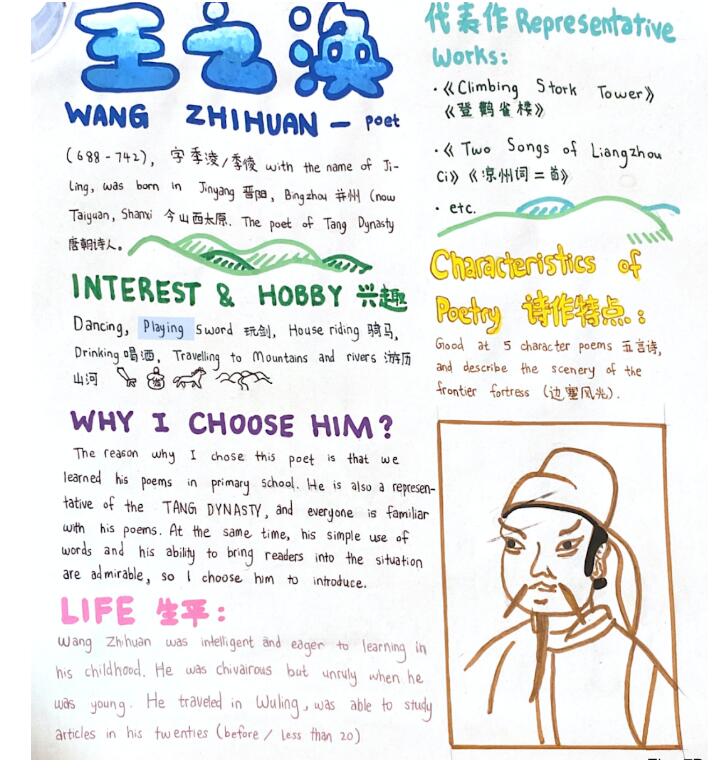 王之涣
WANG ZHIHUAN – poet
(688-742), 字季凌/季倰 with the name of Ji-
Ling, was born in Jinyang 晋阳, Bingzhou 并州 (now
Taiyuan, Shanxi 今山西太原. The poet of Tang Dynasty
唐朝诗人。
INTEREST & HOBBY 兴趣
Dancing, Playing Sword 玩剑, House riding 骑马,
Drinking 喝酒, Travelling to Mountains and rivers 游历
山河
WHY I CHOOSE HIM?
The reason why I chose this poet is that we
learned his poems in primary school. He is also a represen-
tative of the TANG DYNASTY, and everyone is familiar
with his poems. At the same time, his simple use of
words and his ability to bring readers into the situation
are admirable, so I choose him to introduce.
LIFE 生平:
Wang Zhihuan was intelligent and eager to learning in
his childhood. He was chivairous but unruly when he
was young. He traveled in Wuling, was able to study
articles in his twenties (before / less than 20)
代表作 Representative
Works:
·《Climbing Stork Tower》
《登鹳雀楼》
·《Two Songs of Liangzhou
Ci》《凉州词二首》
· etc.
Characteristics of
Poetry 诗作特点:
Good at 5 character poems 五言诗,
and describe the scenery of the
frontier fortress (边塞风光).